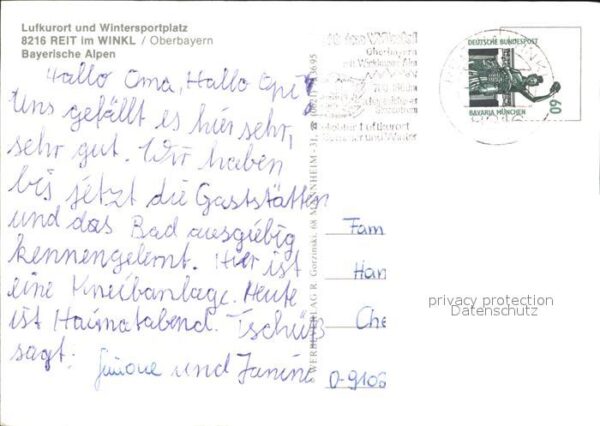 Lufkurort und Wintersportplatz
8216 REIT im WINKL / Oberbayern
Bayerische Alpen
Hallo Oma, Hallo Opi,
Uns gefällt es hier sehr,
sehr gut. Wir haben
bis jetzt die Gaststätten
und das Bad ausgiebig
kennengelernt. Hier ist
eine Kneibanlage. Heute
ist Haimatabend. Tschüß
sagt:
Simone und Janine
WERBEVERLAG R. Gorzinski, 68 MANNHEIM-31,
Oberbayern
Luftkurort
und Winter
DEUTSCHE BUNDESPOST
BAVARIA MÜNCHEN
60
Fam
Han
Che
O-9106
privacy protection
Datenschutz